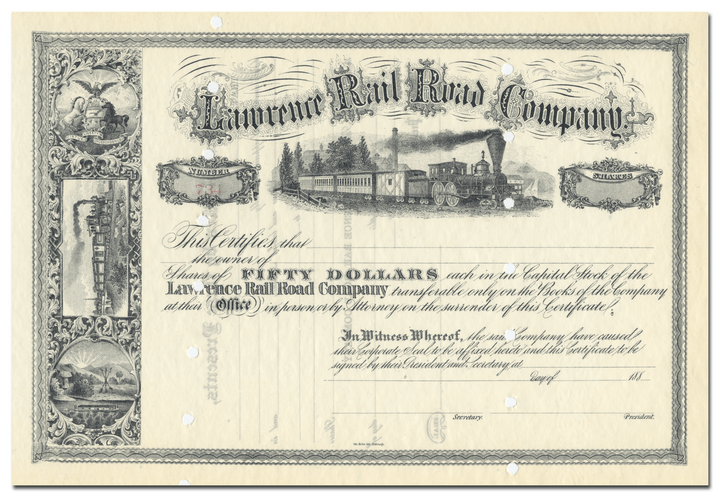 Lawrence Rail Road Company
NUMBER
SHARES
This Certifies that
the owner of
Shares of FIFTY DOLLARS each in the Capital Stock of the
Lawrence Rail Road Company transferable only on the Books of the Company
at their Office in person or by Attorney on the surrender of this Certificate.
In Witness Whereof, the said Company have caused
their Corporate Seal to be affixed hereto and this Certificate to be
signed by their President and Secretary at
day of 188
Secretary. President.